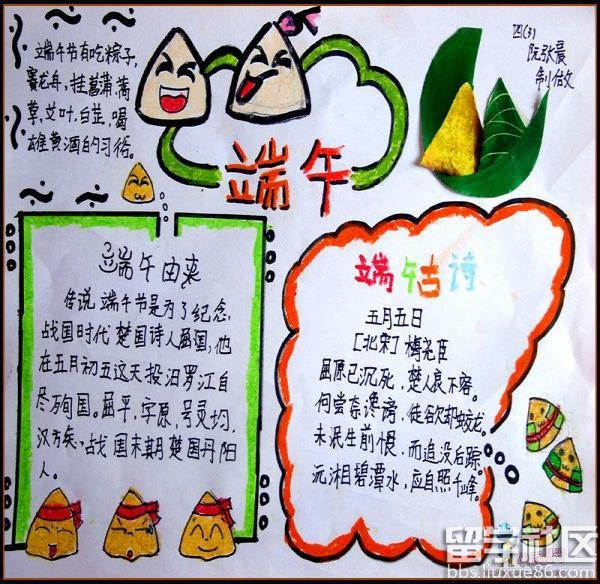 端午节有吃粽子,
赛龙舟,挂菖蒲,蒿
草,艾叶,白芷,喝
雄黄酒的习俗。
四(3)
阮张晨
制作
端午
端午由来
传说端午节是为了纪念,
战国时代楚国诗人屈国,他
在五月初五这天投汨罗江自
尽殉国。屈平,字原,号灵均,
汉方矣,战国末期楚国丹阳
人。
端午古诗
五月五日
[北宋]梅尧臣
屈原已沉死,楚人哀不容。
何尝奈谗谤,徒欲却蛟龙。
未泯生前恨,而追没后踪。
沅湘碧潭水,应自照千峰。
留学社区
bbs.liuxue86.com